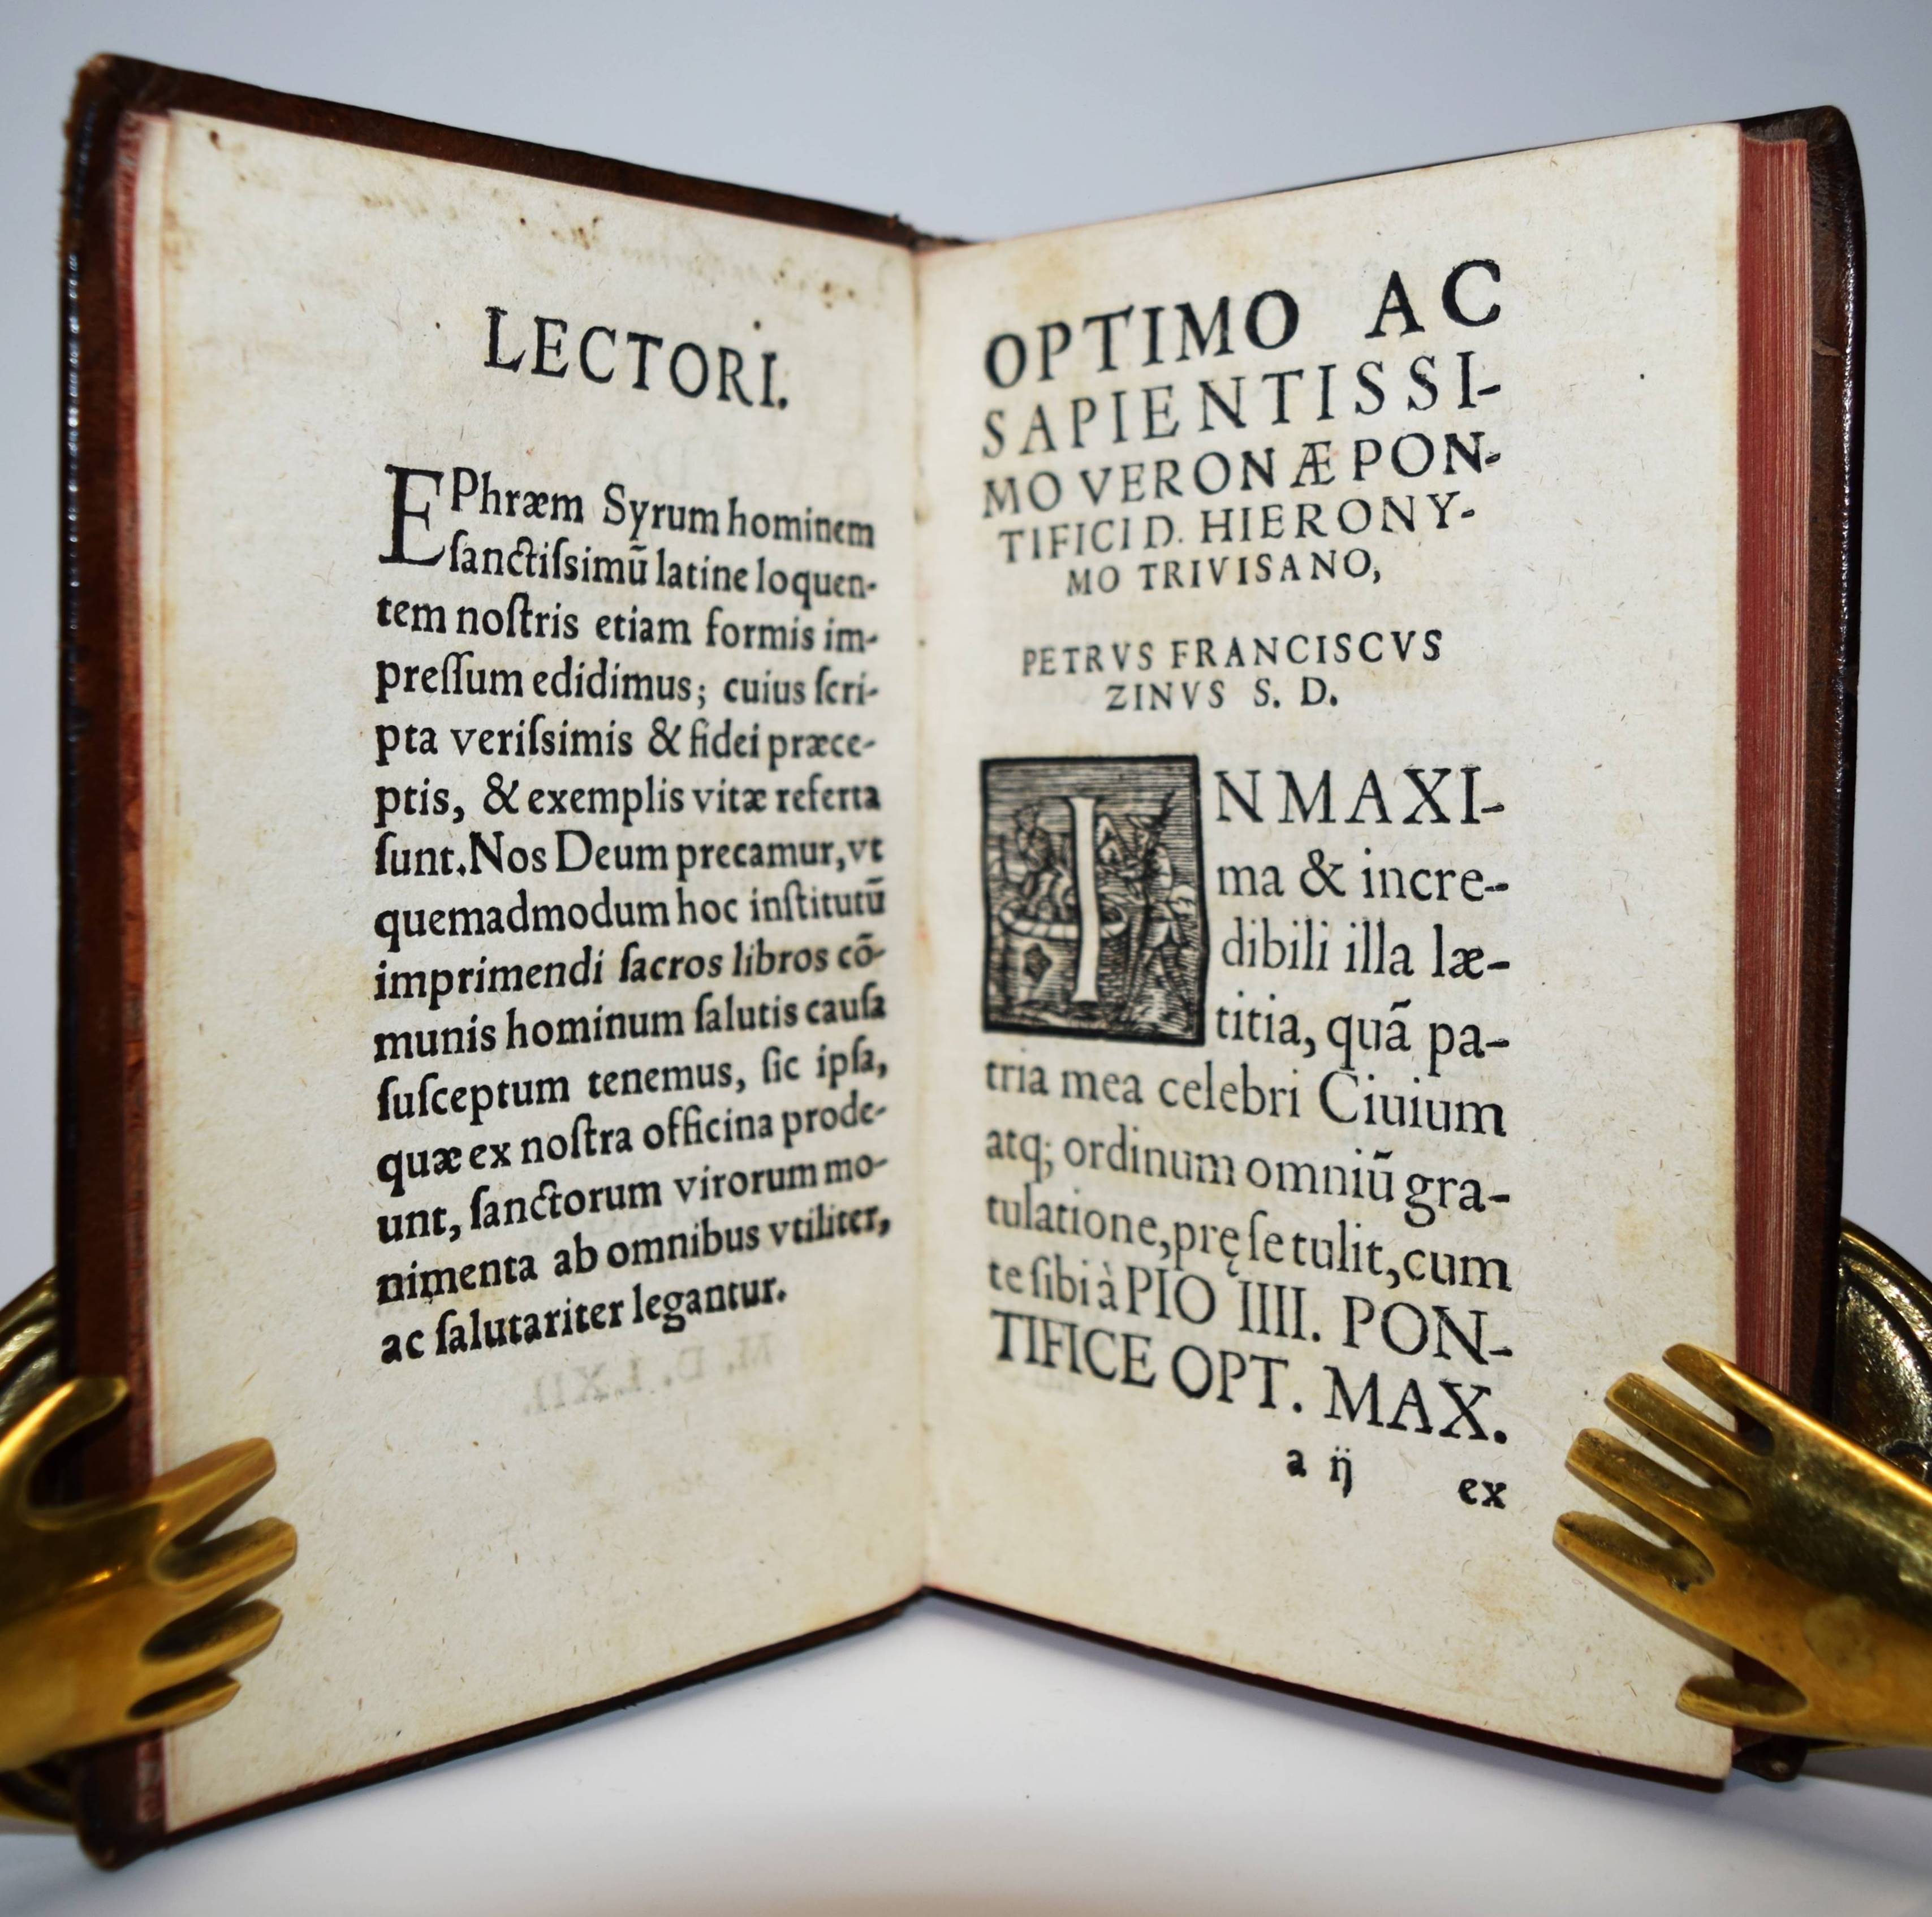 LECTORI.
EPhræm Syrum hominem
ſanctiſsimũ latine loquen-
tem noſtris etiam formis im-
preſſum edidimus; cuius ſcri-
pta veriſsimis & fidei præce-
ptis, & exemplis vitæ referta
ſunt. Nos Deum precamur, vt
quemadmodum hoc inſtitutũ
imprimendi ſacros libros cõ-
munis hominum ſalutis cauſa
ſuſceptum tenemus, ſic ipſa,
quæ ex noſtra officina prode-
unt, ſanctorum virorum mo-
nimenta ab omnibus vtiliter,
ac ſalutariter legantur.
M. D. LXII.
OPTIMO AC
SAPIENTISSI-
MO VERONÆ PON-
TIFICI D. HIERONY-
MO TRIVISANO,
PETRVS FRANCISCVS
ZINVS S. D.
IN MAXI-
ma & incre-
dibili illa læ-
titia, quã pa-
tria mea celebri Ciuium
atq; ordinum omniũ gra-
tulatione, prę ſe tulit, cum
te ſibi à PIO IIII. PON-
TIFICE OPT. MAX.
a ij ex